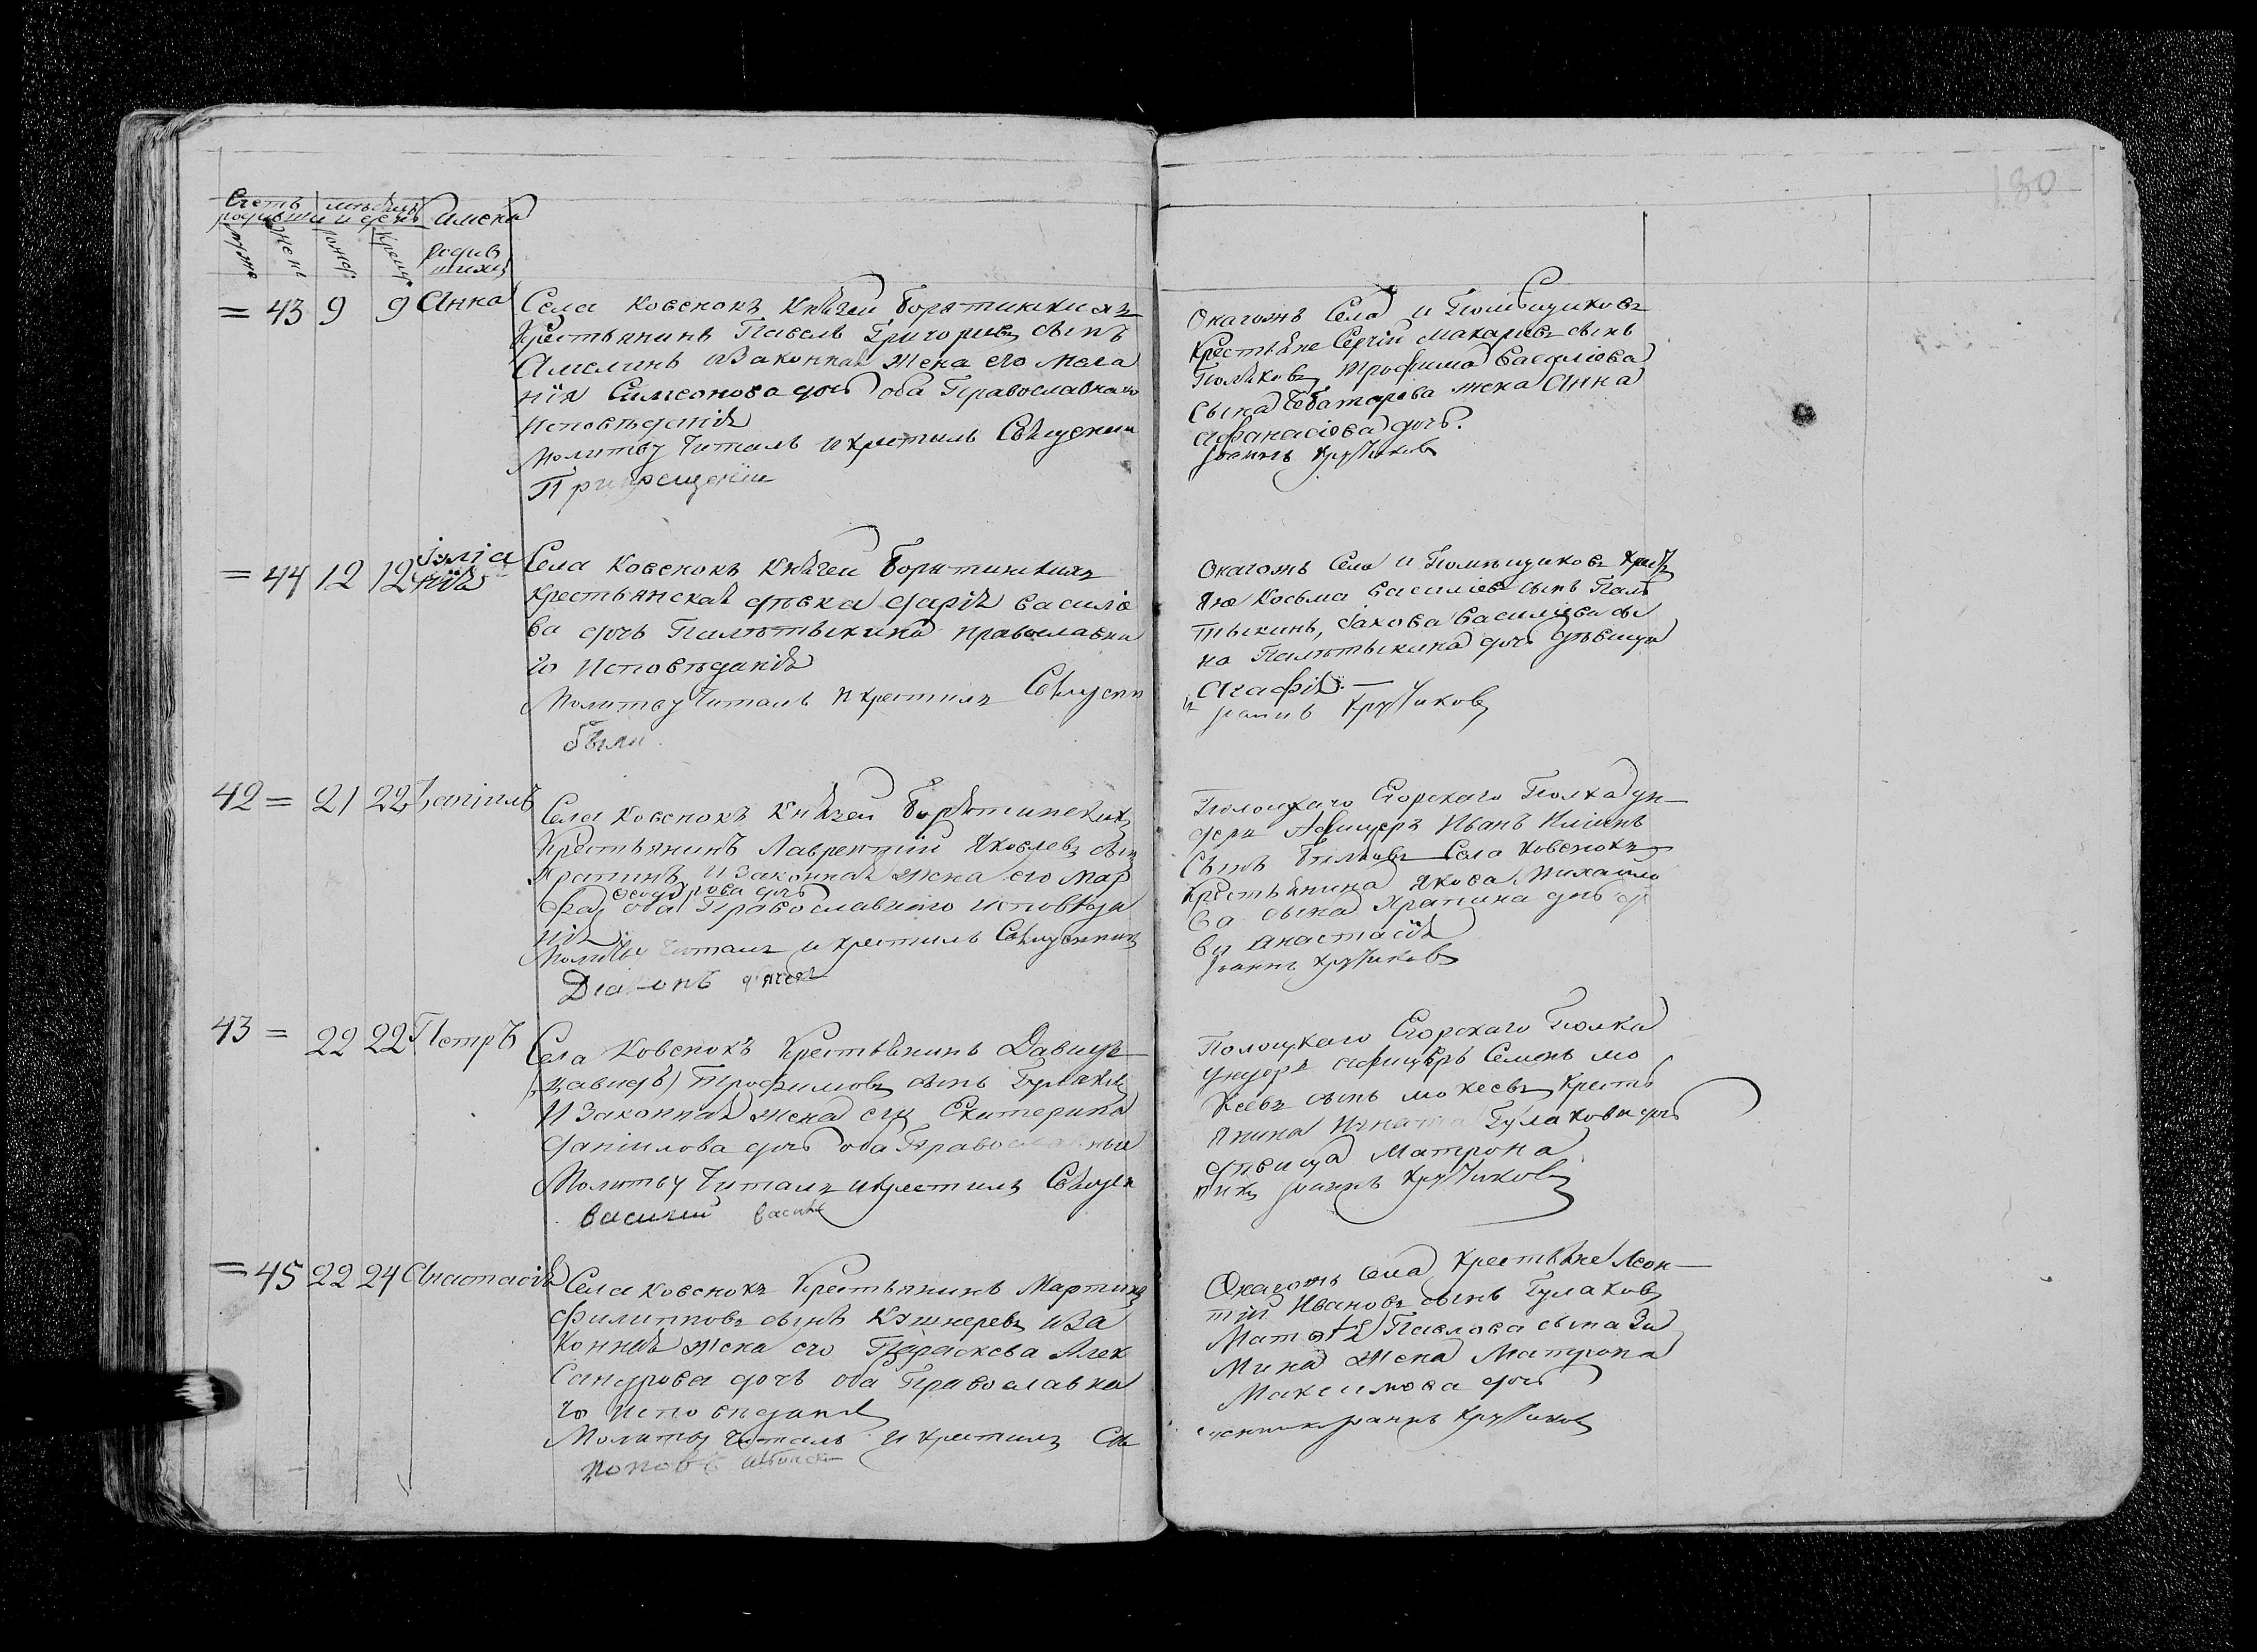 180
Счетъ родивши
мѣсяцъ и день
Имена
родив
шихъ
муж
жен
рожд.
крещ.
= 43 9 9 Анна
Села Ковенокъ Князей Борятинскихъ
Крестьянинъ Павелъ Григорьевъ сынъ
Амелинъ и законная жена его Мела
нія Симеонова дочь оба Православнаго
исповѣданія
Молитву читалъ и крестилъ Священни
При крещеніи
Онагожъ Села и Помѣщиковъ
Крестьяне Сергій Макаріевъ сынъ
Поляковъ, Трофима Василіова
сына Чеботарева жена Анна
Афанасіова дочь.
Іоаннъ Кручиковъ
= 44 12 12 Іуліа
нія
Села Ковенокъ Князей Борятинскихъ
Крестьянская дѣвка Дарія Василіо
ва дочь Палютыкина православна
го исповѣданія
Молитву читалъ и крестилъ Священн
были
Онагожъ Села и Помѣщиковъ Крест
яне Косьма Василіевъ сынъ Палю
тыкинъ, Іакова Василіева сы
на Палютыкина дочь дѣвица
Агафія. —
Іоаннъ Кручиковъ
42 = 21 22 Даніилъ
Села Ковенокъ Князей Борятинскихъ
Крестьянинъ Лаврентий Яковлевъ сынъ
Храпинъ и законная жена его Мар
фа Феодорова дочь оба Православнаго исповѣда
нія
Молитву читалъ и крестилъ Священникъ
Діаконъ
Полоцкаго Егорскаго Полка ун—
деръ Афицеръ Иванъ
сынъ Села Ковенокъ
Крестьянина Якова Михаило
ва сына Храпина дочь дѣ
ва Анастасія
Іоаннъ Кручиковъ
43 = 22 22 Петръ
Села Ковенокъ Крестьянинъ Давидъ
Давидъ) Трофимовъ сынъ Гулаковъ
и законная жена его Екатерина
Даніилова дочь оба Православныи
Молитву читалъ и крестилъ Священ
василей
Полоцкаго Егорскаго Полка
ундеръ афицеръ Семенъ Мо
кеевъ сынъ Мокеевъ Кресть
янина Игната Гулакова дочь
дѣвица Матрона
никъ Іоаннъ Кручиковъ
= 45 22 24 Анастасія
Села Ковенокъ Крестьянинъ Мартинъ
Филипповъ сынъ Кушнеревъ и за
конная жена его Параскева Алек
сандрова дочь оба Православна
го исповѣданія
Молитву читалъ и крестилъ Свя
поповъ
Онагожъ села Крестьяне Леон—
тій Ивановъ сынъ Гулаковъ
Матфѣя Павлова сына Зи
мина жена Матрона
Максимова дочь
щенникъ Іоаннъ Кручиковъ